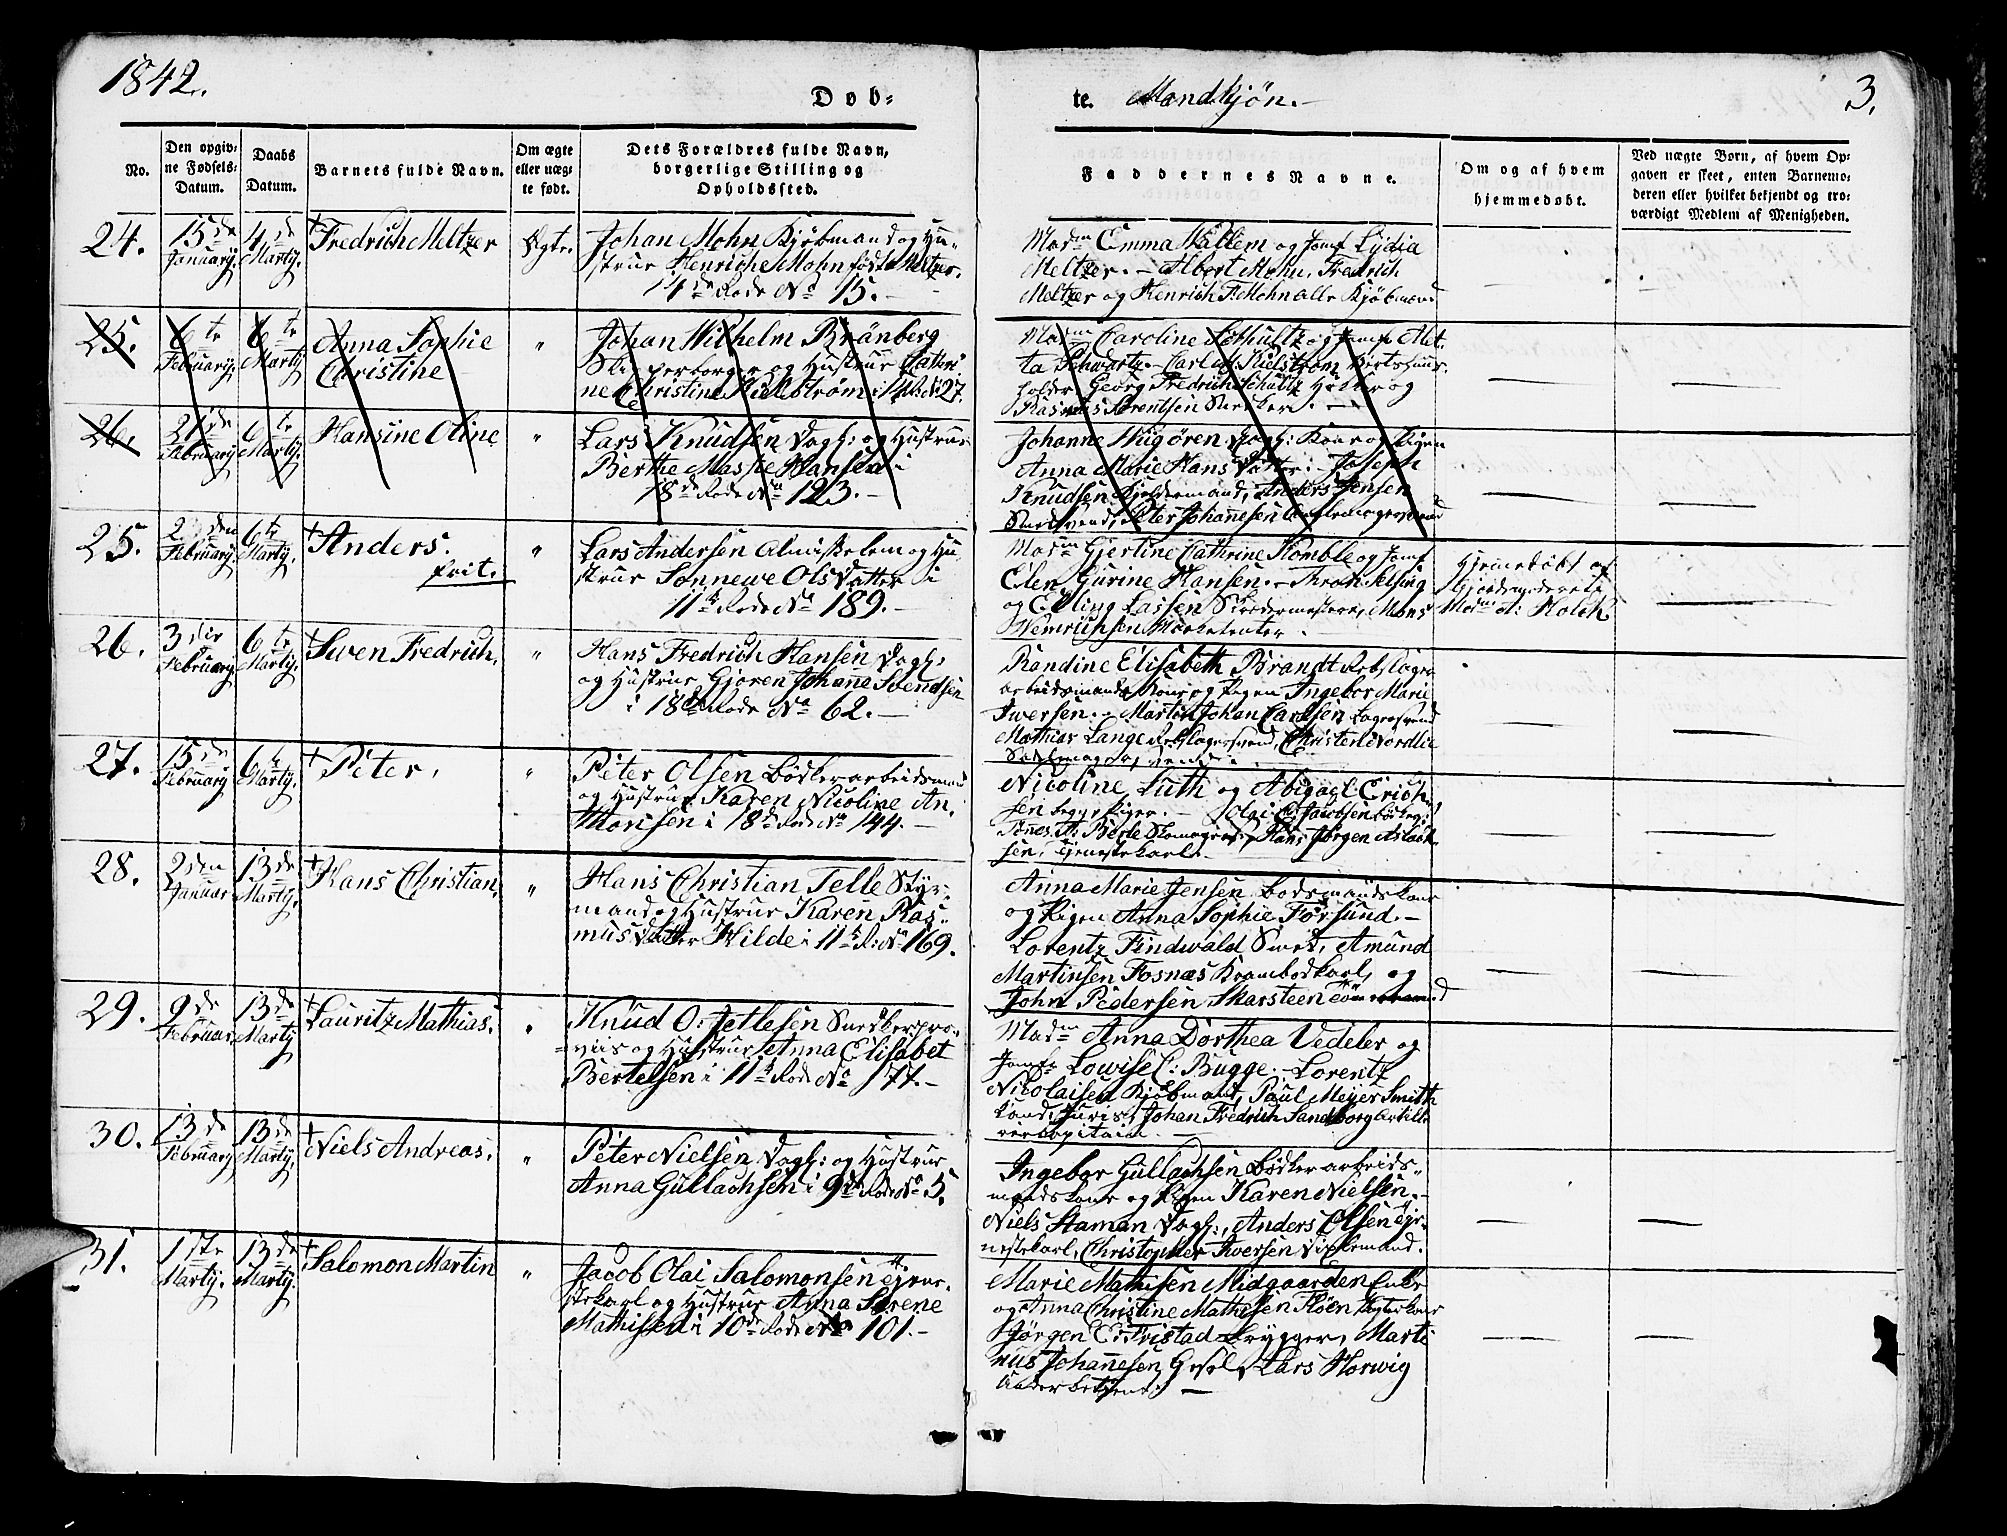 1842.
Døb-
te. Mandkjøn.
3.
No.
Den opgiv-
ne Fødsels-
Datum.
Daabs
Datum.
Barnets fulde Navn.
Om ægte
eller uæg-
te født.
Dets Forældres fulde Navn,
borgerlige Stilling og
Opholdssted.
Faddernes Navne.
Om og af hvem
hjemmedøbt.
Ved uægte Børn, af hvem Op-
gaven er skeet, enten Barnemo-
deren eller hvilket bekjendt og tro-
værdigt Medlem af Menigheden.
24.
15de
January.
4de
Martij.
Fredrich Meltzer
Ægte.
Johan Mohn Kjøbmand og Hu-
strue Henriche Mohn født Meltzer.
14de Rode No 15.
Madm Emma Wallem og Jomf Lydia
Meltzer. Albert Mohn, Fredrich
Meltzer og Henrich F. Mohn alle Kjøbmænd
25.
6te
February.
6te
Martij.
Anna Sophie
Christine
"
Johan Wilhelm Brånberg
borger og Hustrue Cathri-
ne Christine Kielstrøm i 14de R. No 27.
Madm Caroline Schultz og Jomf Met-
ta Schwartz. Carl M. Kielstrøm Værtshuus-
holder Georg Fredrich Schultz Høker og
Rasmus Lorentsen Snedker.
26.
21de
February
6te
Martij.
Hansine Oline
"
Lars Knudsen Dagl: og Hustrue
Berthe Marthe Hansen i
18de Rode No 123.
Johanne Kone og Pigen
Anna Marie Hans Datter. Joseph
Knudsen Kjeldermand, Anders Jensen
Smedsvend, Peter Johannesen
25.
2den
February.
6te
Martij.
Anders.
"
Lars Andersen Almisselem og Hu-
strue Sønnewe Ols Datter i
11te Rode No 189.
Madm Gjertine Cathrine Komble og Jomf
Elen Gurine Hansen. Selsing
og Elling Lassen Skrædermestere, Mons
Hjemmedøbt af
Gjordemoderen
Madme A: Holck
26.
3die
February.
6te
Martij.
Swen Fredrich.
"
Hans Fredrich Hansen Dagl:
og Hustrue Gjøren Johane Svendsen
i 18de Rode No 62.
Randine Elisabeth Brandt Rebslager-
arbeidsmands Kone og Pigen Ingebor Marie
Iwersen. Martin Johan Carlsen Bagersvend
Mathias Lange Rebslagersvend, Christen Nordlie
Sadelmagersvend.
27.
15de
February
6te
Martij.
Peter.
"
Peter Olsen Bødkerarbeidsmand
og Hustrue Karen Nicoline An-
thonisen i 18de Rode No 144.
Nicoline Luth og Abigael Erich-
sen begge Piger. Olai C. Jacobsen
Tønes A. Berle Skomagersv. Hans Jørgen Aslach-
sen, Tjenestekarle.
28.
2den
Januar
13de
Martij.
Hans Christian.
"
Hans Christian Telle Styr-
mand og Hustrue Karen Ras-
mus Datter Hilde i 11te R: No 169.
Anna Marie Jensen Bodsmandskone
og Pigen Anna Sophie Forsund.
Lorentz Findwald Smed, Amund
Martinsen Fosnæs Krambodkarl, og
John Pedersen Skarsteen Tømmermand
29.
9de
Februar.
13de
Martij
Lauritz Mathias.
"
Knud O: Jetlesen Snedkerpro-
viis og Hustrue Anna Elisabet
Bertelsen i 11te Rode No 177.
Madm Anna Dorthea Vedeler og
Jomf: Lowise C: Bugge. Lorentz
Nicolaisen Kjøbmand, Paul Meyer Smith
Cand: Juris, Johan Fredrich Sandborg Artille-
riecapitain.
30.
13de
February
13de
Martij.
Niels Andreas.
"
Peter Nielsen Dagl: og Hustrue
Anna Gullachsen i 9de Rode No 5.
Ingebor Gullachsen Bødkerarbeids-
mands kone og Pigen Karen Nielsen.
Niels Haman Dagl:, Anders Olsen Tje-
nestekarl, Christopher Iwersen Dixlemand.
31.
1ste
Martij.
13de
Martij.
Salomon Martin
"
Jacob Olai Salomonsen Tjene-
stekarl og Hustrue Anna Serene
Mathisen i 10de Rode No 101.
Marie Mathisen Midgaarden Enke
og Anna Christine Mathisen Fløen
Jørgen E. Fristad Brygger, Marti-
nus Johannesen Gesel, Lars Horwig
Underbetjent.